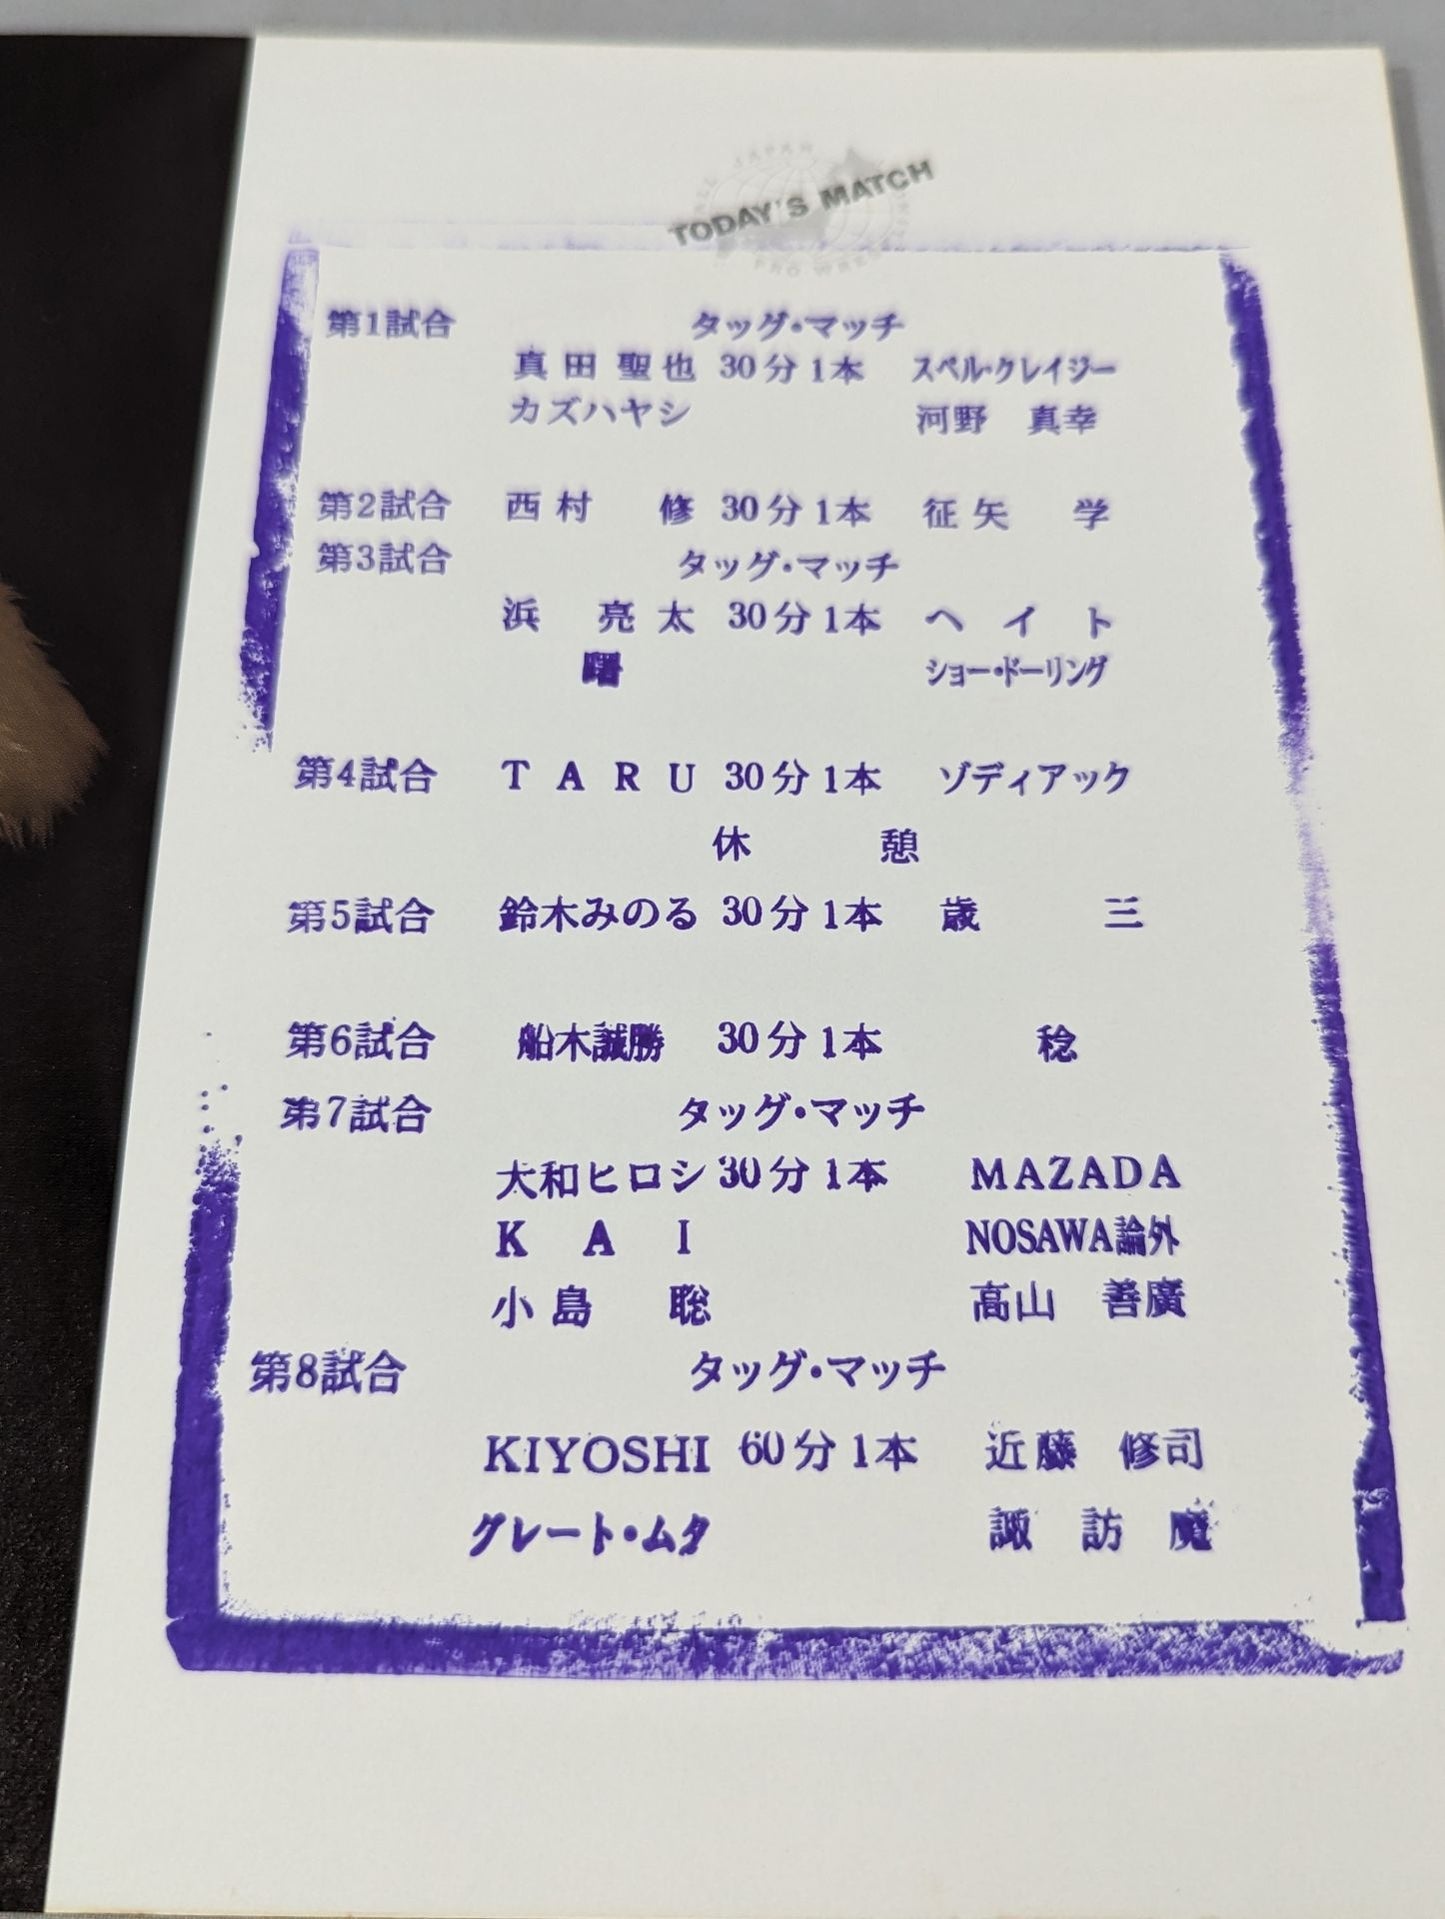 TODAY'S MATCH
第1試合 タッグ・マッチ
真田聖也 30分1本 スペル・クレイジー
カズハヤシ 河野 真幸
第2試合 西村 修 30分1本 征矢 学
第3試合 タッグ・マッチ
浜 亮太 30分1本 ヘイト
曙 ショー・ドーリング
第4試合 TARU 30分1本 ゾディアック
休 憩
第5試合 鈴木みのる 30分1本 歳 三
第6試合 船木誠勝 30分1本 稔
第7試合 タッグ・マッチ
大和ヒロシ 30分1本 MAZADA
KAI NOSAWA論外
小島 聡 高山 善廣
第8試合 タッグ・マッチ
KIYOSHI 60分1本 近藤 修司
グレート・ムタ 諏訪魔